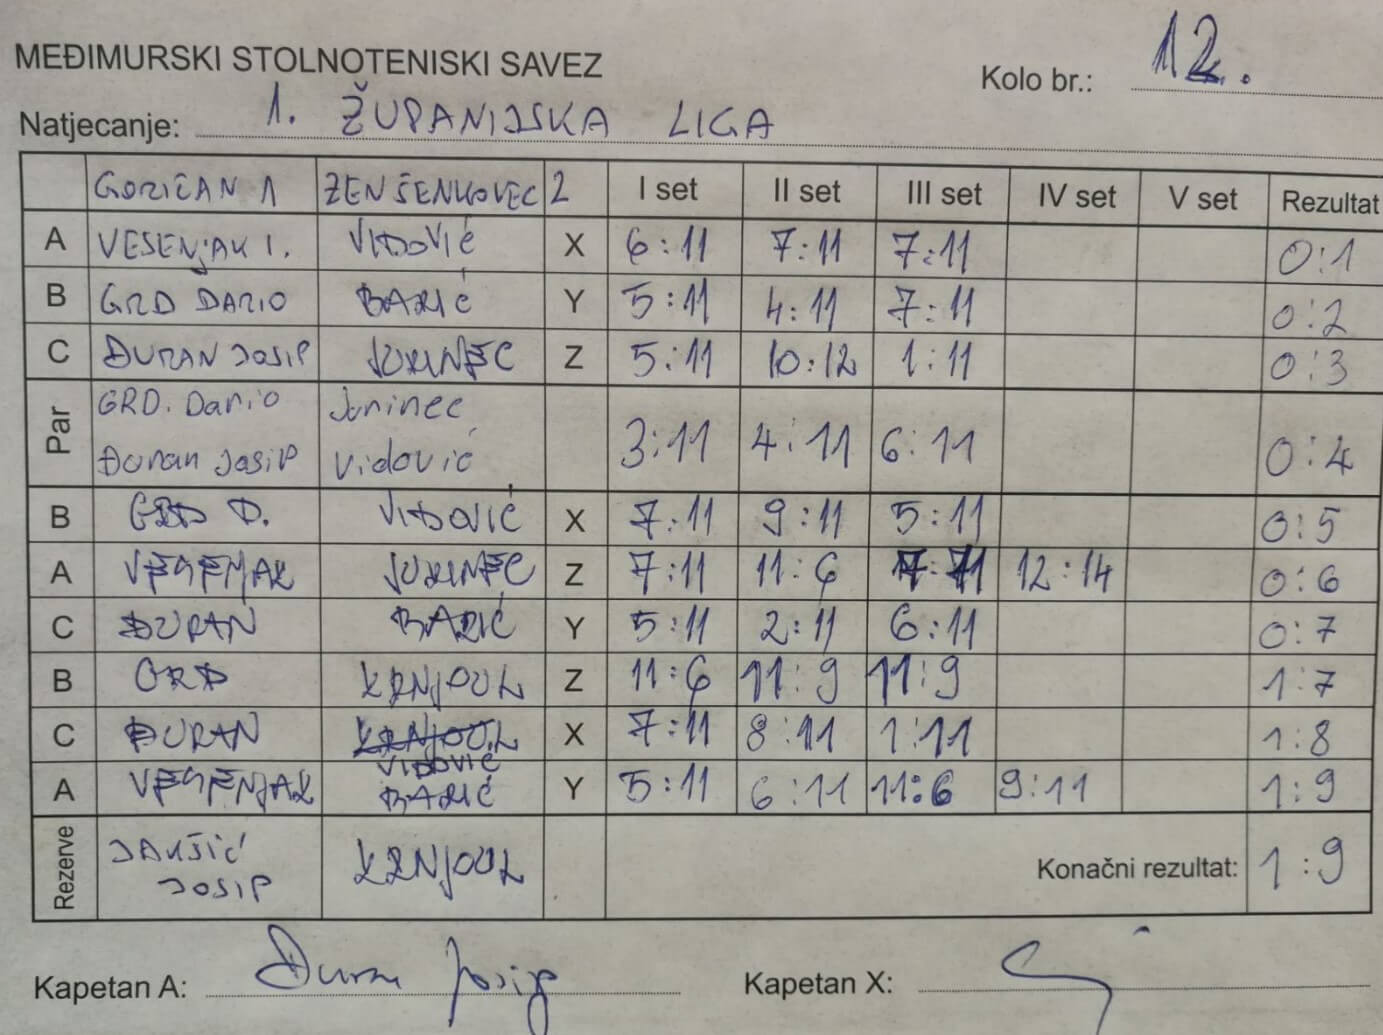 MEĐIMURSKI STOLNOTENISKI SAVEZ
Kolo br.: 12.
Natjecanje: 1. ŽUPANIJSKA LIGA
GORIČAN 1 ŽEN ŠENKOVEC 2 I set II set III set IV set V set Rezultat
A VESENJAK I. VIDOVIĆ X 6:11 7:11 7:11 0:1
B GRD DARIO BARIĆ Y 5:11 4:11 7:11 0:2
C ĐURAN JOSIP JURINEC Z 5:11 10:12 1:11 0:3
Par GRD. Dario Jurinec 3:11 4:11 6:11 0:4
Đuran Josip Vidović
B GRD D. VIDOVIĆ X 7:11 9:11 5:11 0:5
A VESENJAK JURINEC Z 7:11 11:6 12:14 0:6
C ĐURAN BARIĆ Y 5:11 2:11 6:11 0:7
B GRD KRNJOUL Z 11:6 11:9 11:9 1:7
C ĐURAN KRNJOUL X 7:11 8:11 1:11 1:8
VIDOVIĆ
A VESENJAK BARIĆ Y 5:11 6:11 11:6 9:11 1:9
Rezerve JAKŠIĆ KRNJOUL Konačni rezultat: 1:9
JOSIP
Kapetan A: Đuran Josip Kapetan X: